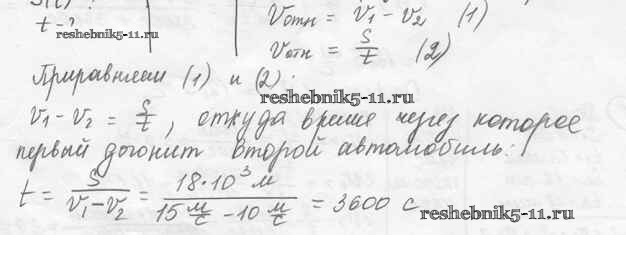 t - ?
reshebnik5-11.ru
vотн = v1 - v2 (1)
vотн = S/t (2)
Приравняем (1) и (2):
reshebnik5-11.ru
v1 - v2 = S/t, откуда время через которое
первый догонит второй автомобиль:
t = S/(v1 - v2) = 18·10³ м/(15 м/с - 10 м/с) = 3600 с
reshebnik5-11.ru